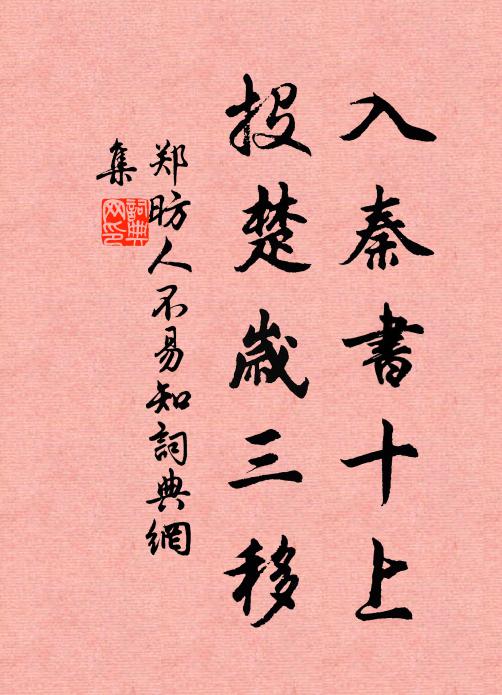 入秦書十上
投楚歲三移
郑昉人不易知詞典網
集
詞典
网印